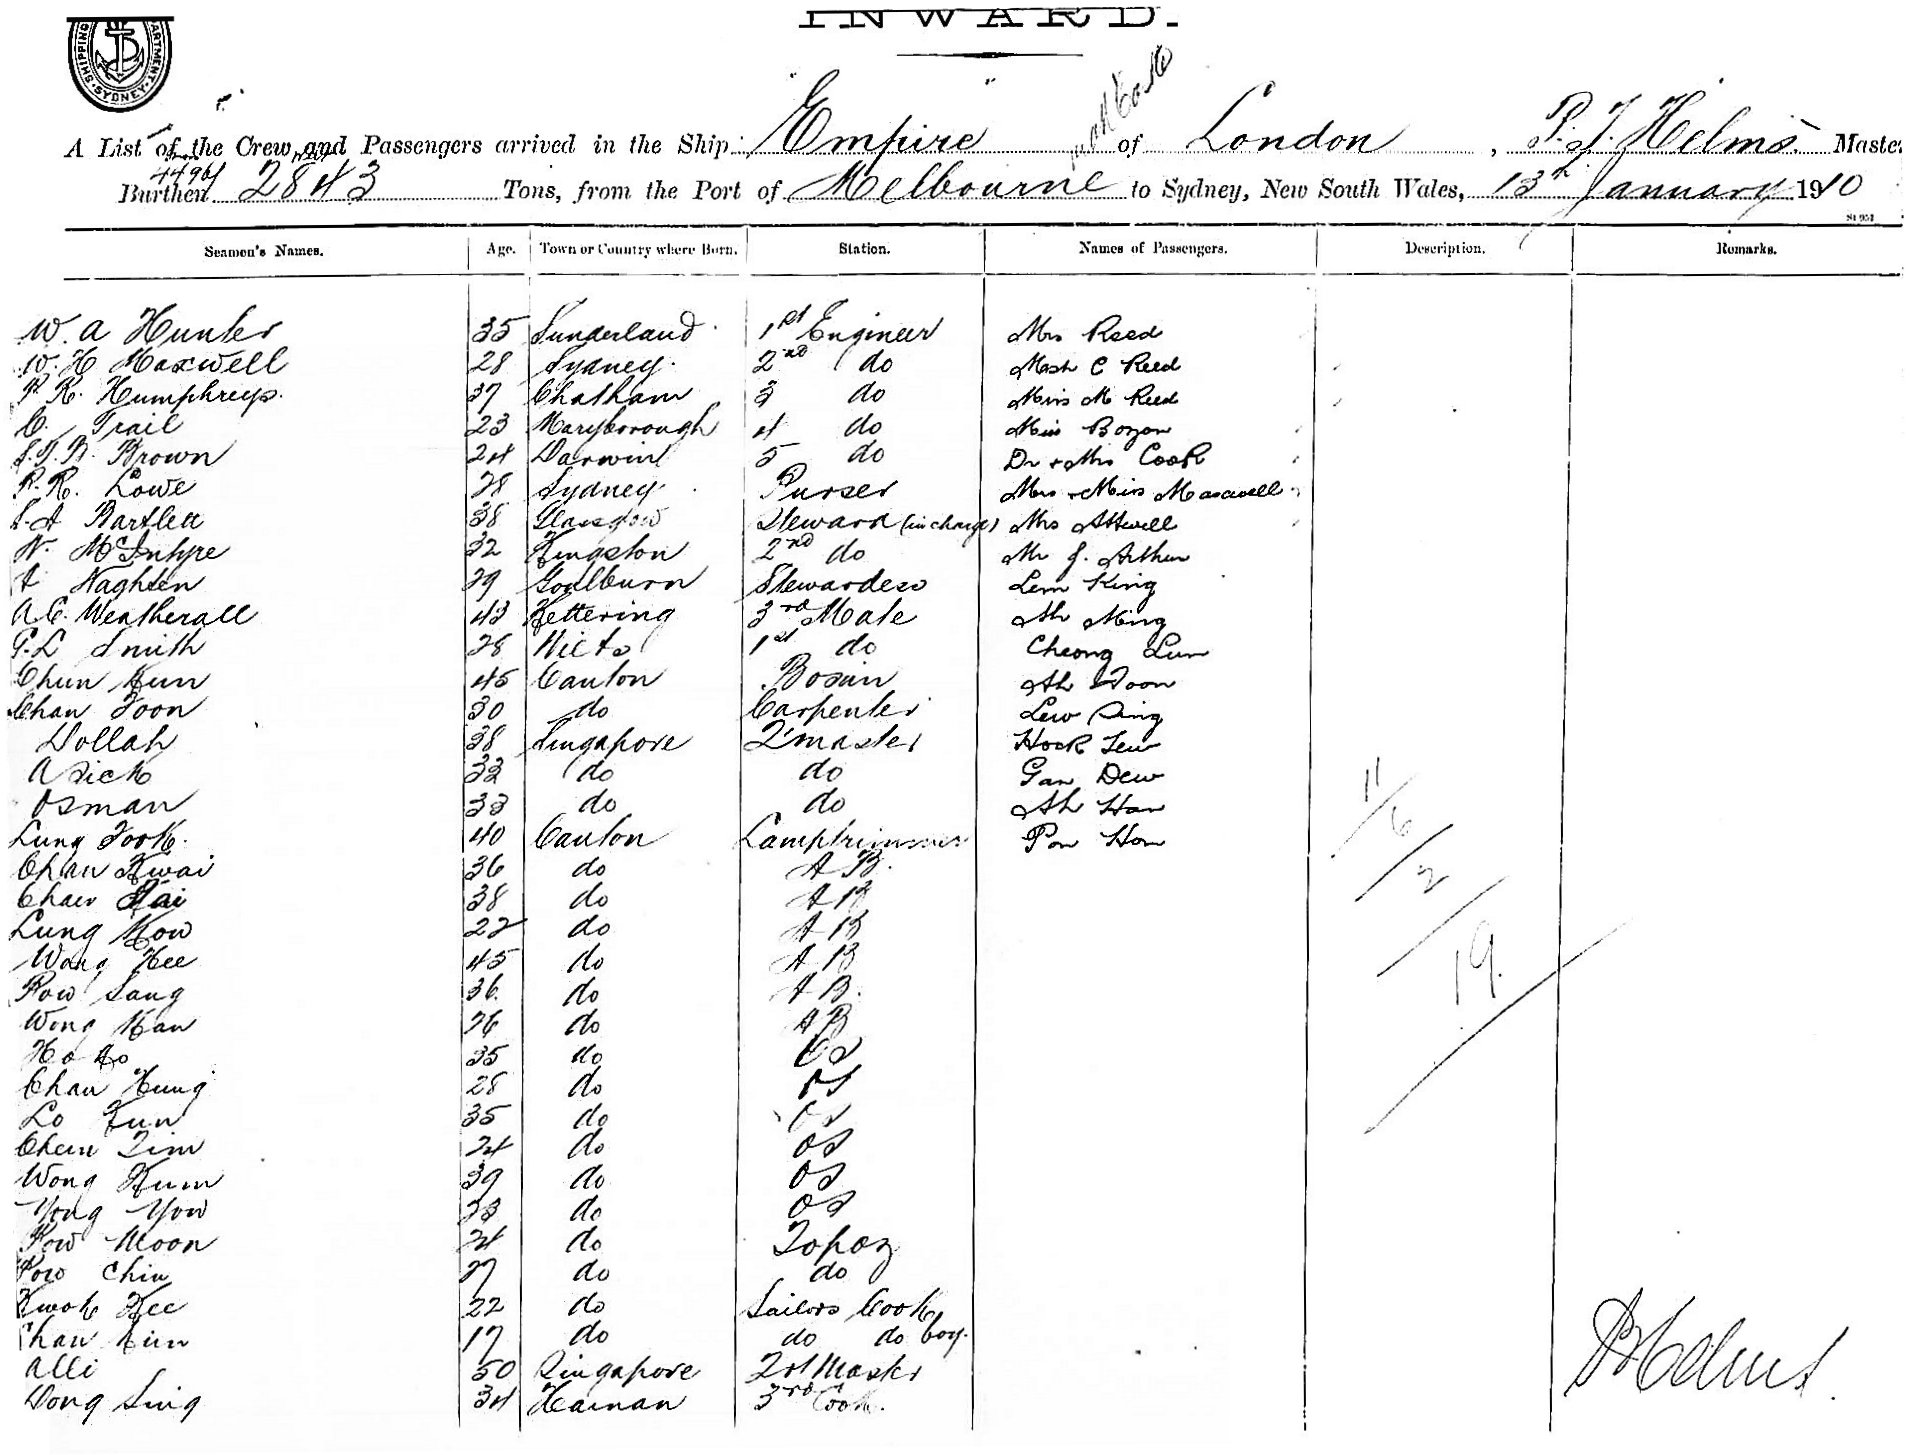 INWARD.
SHIPPING DEPARTMENT SYDNEY
A List of the Crew and Passengers arrived in the Ship "Empire" of London, P. T. Helms. Maste
4496
Burthen 2843 Tons, from the Port of Melbourne to Sydney, New South Wales, 13th January 1910
Seamen's Names. Age. Town or Country where Born. Station. Names of Passengers. Description. Remarks.
W. A Hunter 35 Sunderland 1st Engineer Mrs Reed
W. H Maxwell 28 Sydney. 2nd do Mast C Reed
R. K. Humphreys. 37 Chatham 3 do Miss M Reed
C. Trail 23 Maryborough 4 do Miss
Brown 24 Darwin 5 do Dr & Mrs Cook
R. R. Lowe 28 Sydney. Purser Mrs & Miss Maxwell
S. A Bartlett 38 Glasgow Steward (in charge) Mrs Attwell
N. McIntyre 32 Kingston 2nd do Mr J. Arthur
A Naghten 29 Goulburn Stewardess Lem King
A. C. Weatherall 43 Kettering 3rd Mate Ah Ming
P. L Smith 28 Victo 1st do Cheong Lum
Chun Kun 45 Canton Bosun Ah Toon
Chan Foon 30 do Carpenter Lew Sing
Dollah 38 Singapore Q'master Hock Lew
Asick 33 do do Gan Dew
Osman 33 do do Ah Han
Lung Fook. 40 Canton Lamptrimmer Pon Hon
Chan Kwai 36 do A B.
Chan Kai 38 do A B
Lung Kow 22 do A B
Wong Kee 45 do A B
Pow Sang 36. do A B.
Wong Kan 26 do A B
Ho 35 do OS
Chan Hung 28 do OS
Lo Kun 35 do OS
Chun Tim 24 do OS
Wong Kum 39 do OS
Yong Yow 23 do OS
Pow Moon 24 do Topaz
Pow Chin 27 do do
Kwok Kee 22 do Sailors Cook
Chan Kun 17 do do do boy.
Alli 50 Singapore Master
Dong Sing 34 Hainan 3rd Cook.
11/6/2/19.
P T Helms.